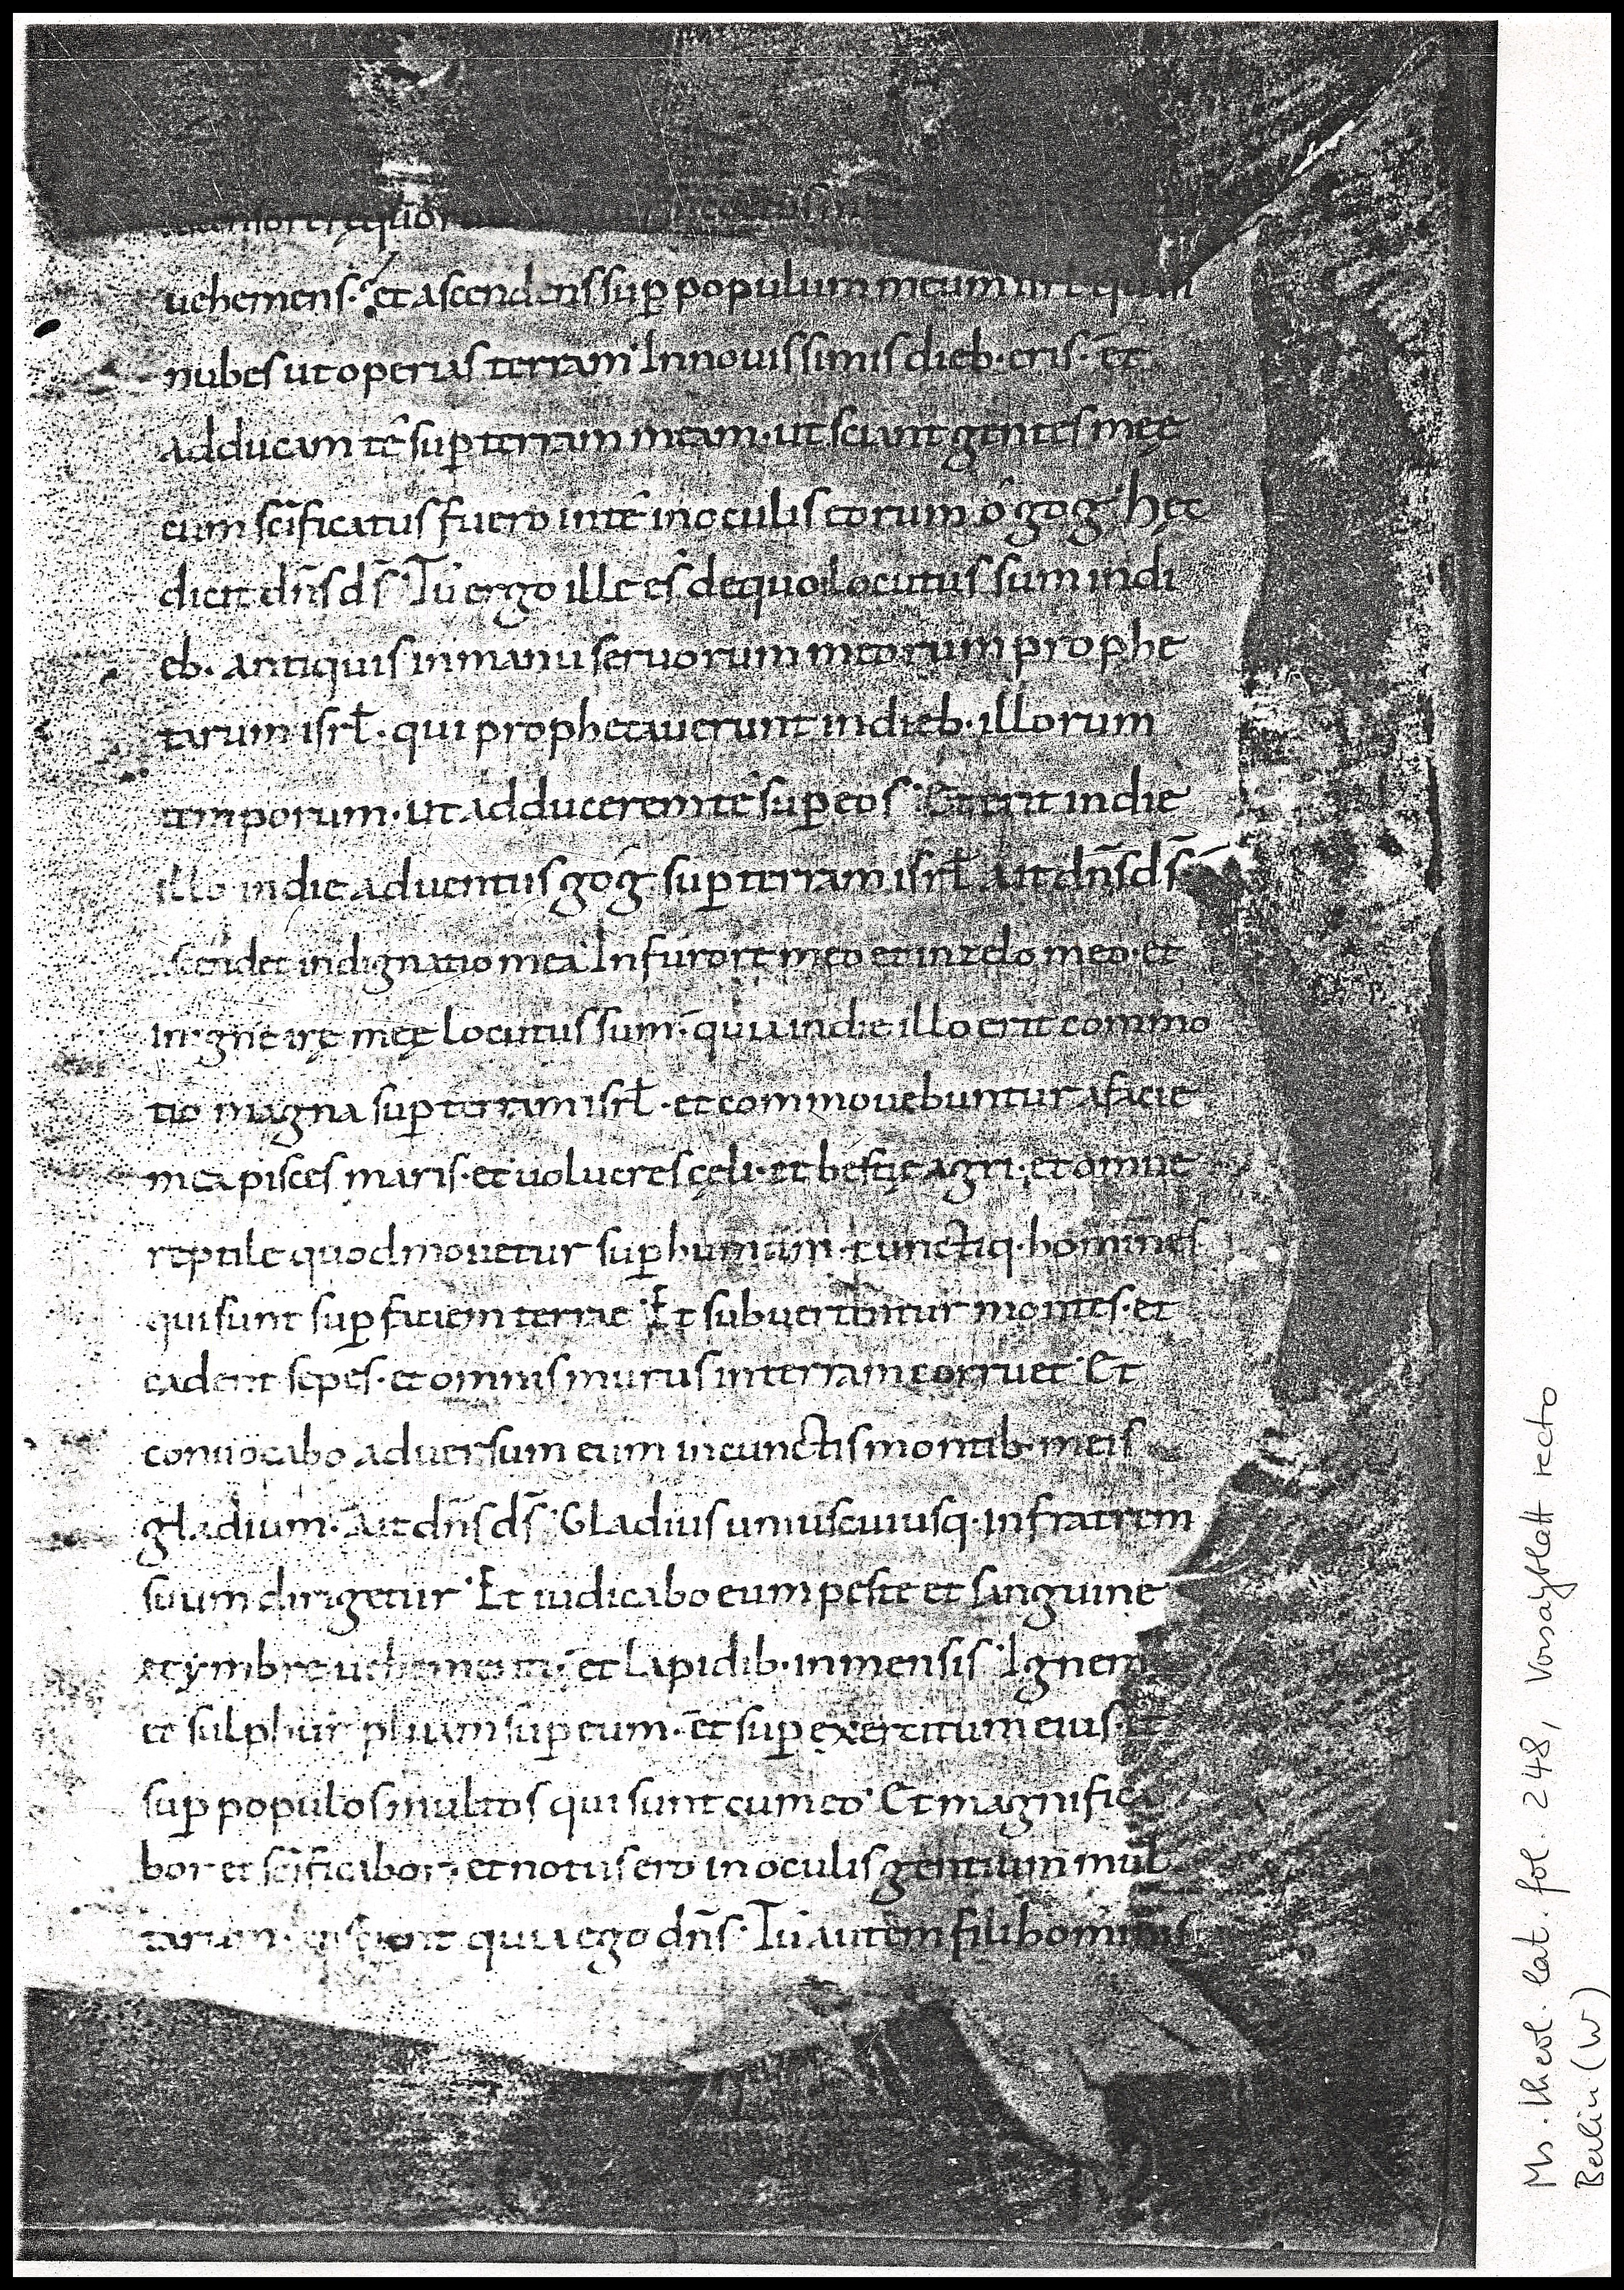 uehemens. et ascendens sup̲ populum meum isrl̄ quasi
nubes ut operias terram. In nouissimis dieb· eris· et
adducam te sup̲ terram meam· ut sciant gentes meę
cum sc̄ificatus fuero in te in oculis eorum o gog. hęc
dicit dn̄s ds̄. Tu ergo ille es de quo locutus sum in di
eb· antiquis in manu seruorum meorum prophe
tarum isrł· qui prophetauerunt in dieb· illorum
temporum· ut adducerem te sup̲ eos. Et erit in die
illo in die aduentus gog sup̲ terram isrł ait dn̄s ds̄
ascendet indignatio mea. In furore meo et in zelo meo· et
in igne irę meę locutus sum· quia in die illo erit commo
tio magna sup̲ terram isrł· et commouebuntur a facie
mea pisces maris· et uolucres cęli· et bestię agri· et omne
reptile quod mouetur sup̲ humum· cunctiq· homines
qui sunt sup̲ faciem terrae. Et subuertentur montes· et
cadent sepes· et omnis murus in terram corruet. Et
conuocabo aduersum eum in cunctis montib· meis
gladium· ait dn̄s ds̄. Gladius uniuscuiusq· in fratrem
suum dirigetur. Et iudicabo eum peste et sanguine
et ymbre uehementi· et lapidib· inmensis. Ignem
et sulphur pluam sup̲ eum· et sup̲ exercitum eius· et
sup̲ populos multos qui sunt cum eo. Et magnifica
bor et sc̄ificabor· et notus ero in oculis gentium mul
tarum· et scient quia ego dn̄s. Tu autem fili hominis
Ms. theol. lat. fol. 248, Vorsatzblatt recto
Berlin (W)